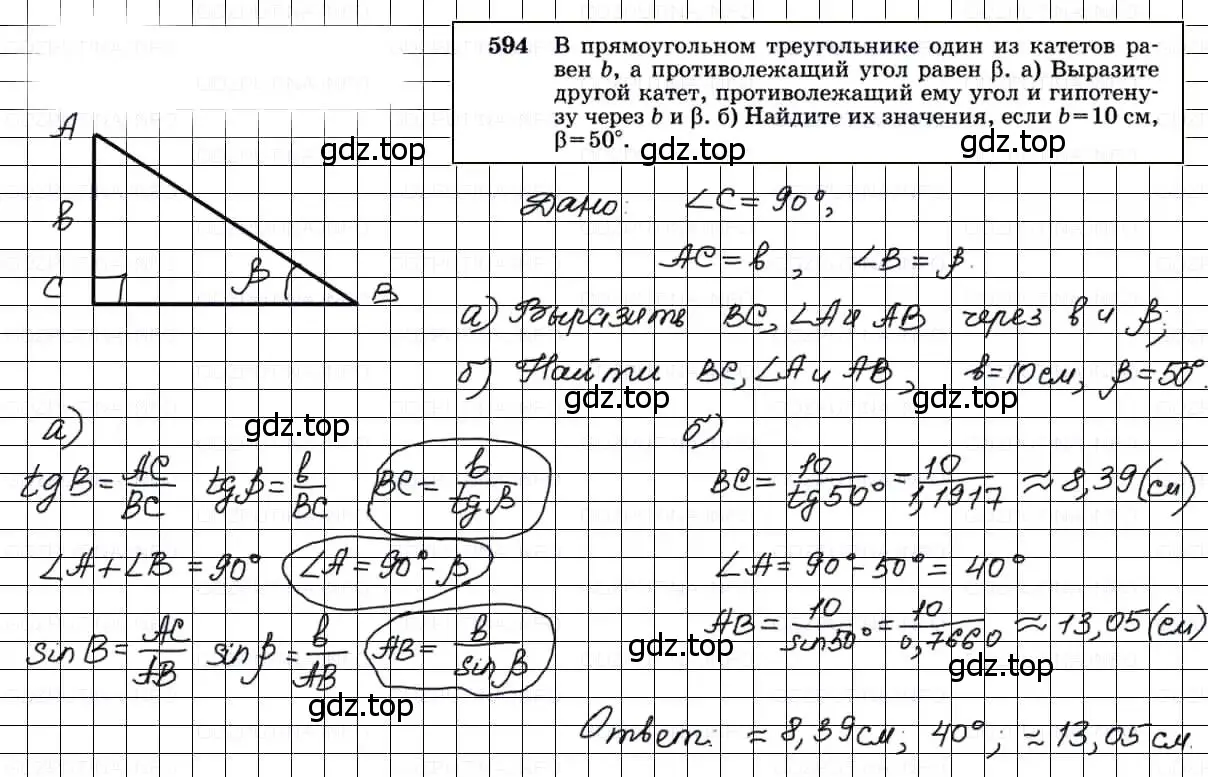 594 В прямоугольном треугольнике один из катетов ра-
вен b, а противолежащий угол равен β. а) Выразите
другой катет, противолежащий ему угол и гипотену-
зу через b и β. б) Найдите их значения, если b=10 см,
β=50°.
gdz.top gdz.top gdz.top
A
в
C β B
Дано: ∠C = 90°,
AC = в , ∠B = β.
а) Выразить BC, ∠A и AB через в и β;
б) Найти BC, ∠A и AB , в=10см, β=50°.
gdz.top gdz.top gdz.top
а)
tg B = AC/BC tg β = в/BC BC = в/tg β
∠A + ∠B = 90° ∠A = 90° - β
sin B = AC/AB sin β = в/AB AB = в/sin β
б)
BC = 10/tg 50° = 10/1,1917 ≈ 8,39 (см)
∠A = 90° - 50° = 40°
AB = 10/sin 50° = 10/0,7660 ≈ 13,05 (см)
gdz.top gdz.top gdz.top
Ответ: ≈ 8,39 см; 40°; ≈ 13,05 см.